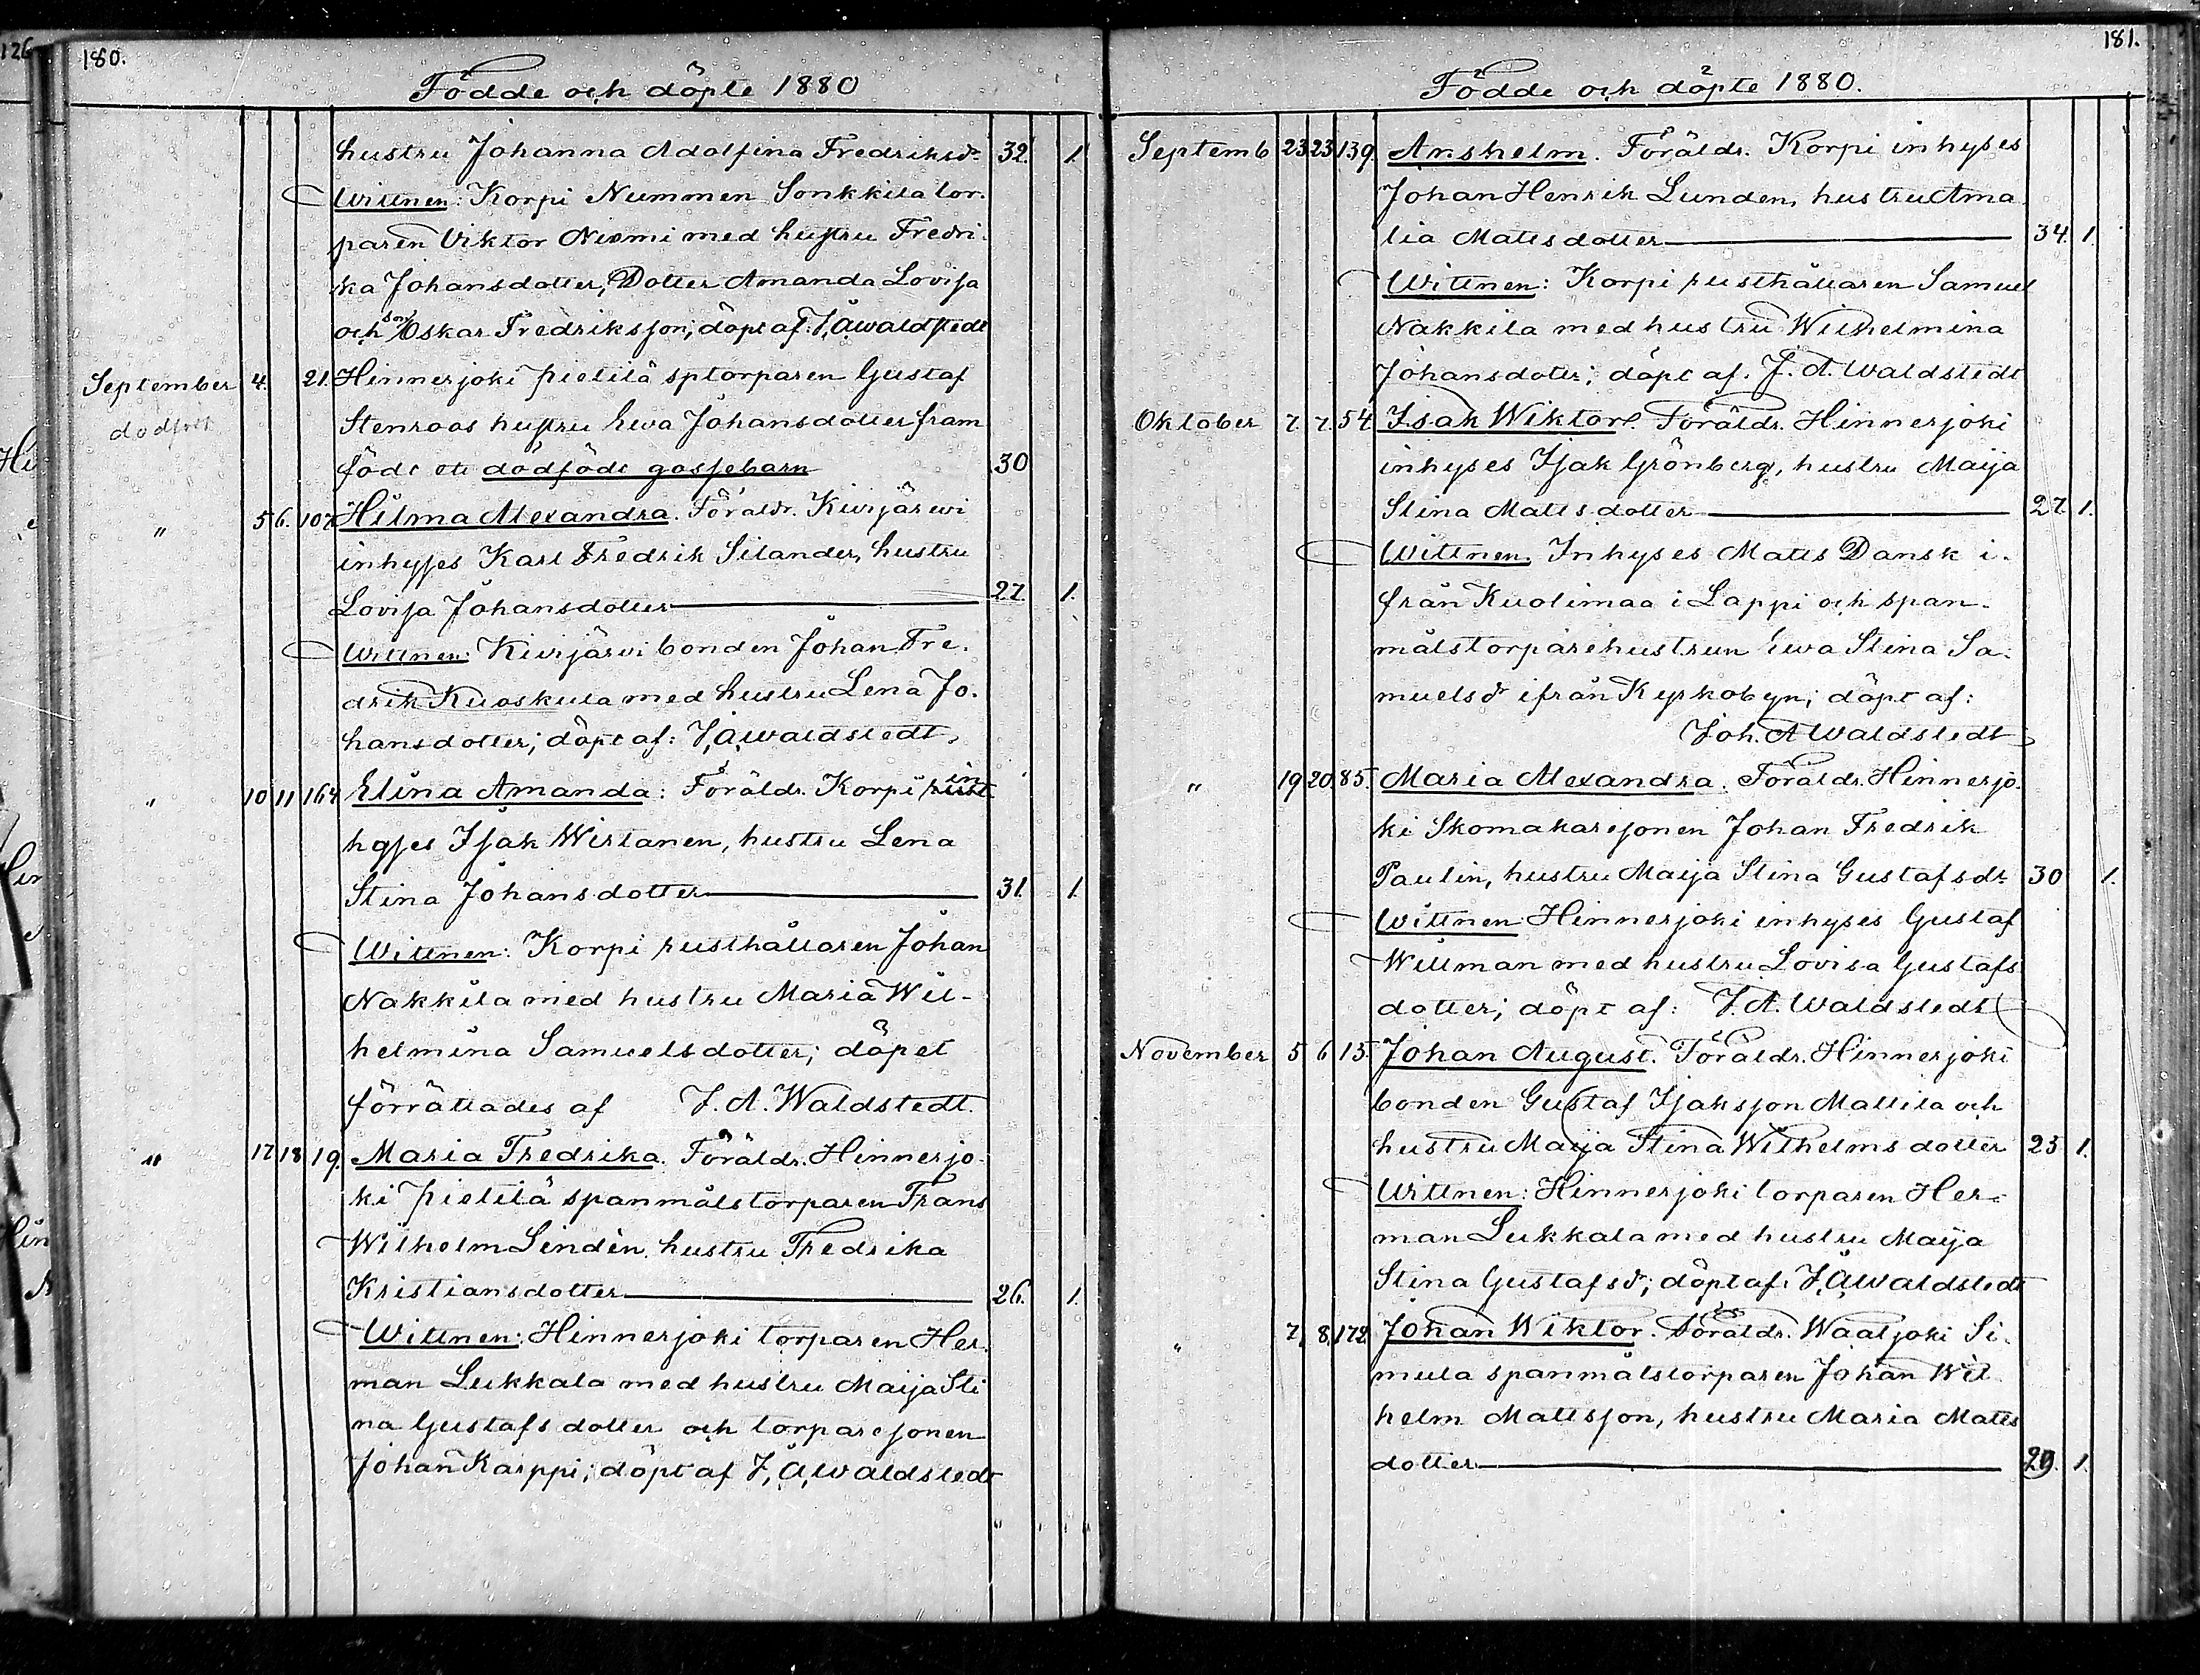 126
180.
Födde och döpte 1880
hustru Johanna Adolfina Fredriksdr 32. 1.
Wittnen: Korpi Nummen Sonkkila tor-
paren Viktor Niemi med hustru Fredri-
ka Johansdotter, Dotter Amanda Lovisa
och son Oskar Fredriksson; döpt af: J. A. Waldstedt
September 4. 21. Hinnerjoki Pietilä sptorparen Gustaf
dödfött Stenroos hustru Ewa Johansdotter fram
födt ett dödfödt gossebarn 30
" 5 6. 107. Hilma Alexandra. Föräldr. Kivijärwi
inhyses Karl Fredrik Silander, hustru
Lovisa Johansdotter 27. 1.
Wittnen: Kivijärvi bonden Johan Fre-
drik Kuoskula med hustru Lena Jo-
hansdotter; döpt af: J. A. Waldstedt,
" 10 11 164 Elina Amanda: Föräldr. Korpi in
hyses Isak Wirtanen, hustru Lena
Stina Johansdotter 31. 1.
Wittnen: Korpi rusthållaren Johan
Nakkila med hustru Maria Wil-
helmina Samuelsdotter; döpet
förrättades af J. A. Waldstedt.
" 17 18 19. Maria Fredrika. Föräldr. Hinnerjo-
ki Pietilä spanmålstorparen Frans
Wilhelm Lindèn, hustru Fredrika
Kristiansdotter 26. 1.
Wittnen: Hinnerjoki torparen Her-
man Leikkala med hustru Maija Sti
na Gustafsdotter och torparesonen
Johan Karppi; döpt af J. A. Waldstedt
181.
Födde och döpte 1880.
Septemb 23. 23. 139. Anshelm. Föräldr. Korpi inhyses
Johan Henrik Lunden, hustru Ama
lia Mattsdotter 34. 1.
Wittnen: Korpi rusthållaren Samuel
Nakkila med hustru Wilhelmina
Johansdoter; döpt af. J. A. Waldstedt
Oktober 7. 7. 54 Isak Wiktor. Föräldr. Hinnerjoki
inhyses Isak Grönberg, hustru Maija
Stina Mattsdotter 27. 1.
Wittnen, Inhyses Matts Dansk i-
från Kuolimaa i Lappi och span-
målstorparehustrun Ewa Stina Sa-
muelsdr ifrån Kyrkobyn; döpt af:
Joh. A Waldstedt
" 19 20. 85. Maria Alexandra. Föräldr. Hinnerjo-
ki Skomakaresonen Johan Fredrik
Paulin, hustru Maija Stina Gustafsdr 30 1.
Wittnen Hinnerjoki inhyses Gustaf
Willman med hustru Lovisa Gustafs
dotter; döpt af: J. A. Waldstedt
November 5 6 15. Johan August. Föräldr. Hinnerjoki
bonden Gustaf Isaksson Mattila och
hustru Maija Stina Wilhelmsdotter 23 1.
Wittnen: Hinnerjoki torparen Her-
man Leikkala med hustru Maija
Stina Gustafsdr; döpt af J. A. Waldstedt
" 7. 8. 172. Johan Wiktor. Föräldr. Waaljoki Si-
mula spanmålstorparen Johan Wil
helm Mattsson, hustru Maria Matts
dotter 29. 1.